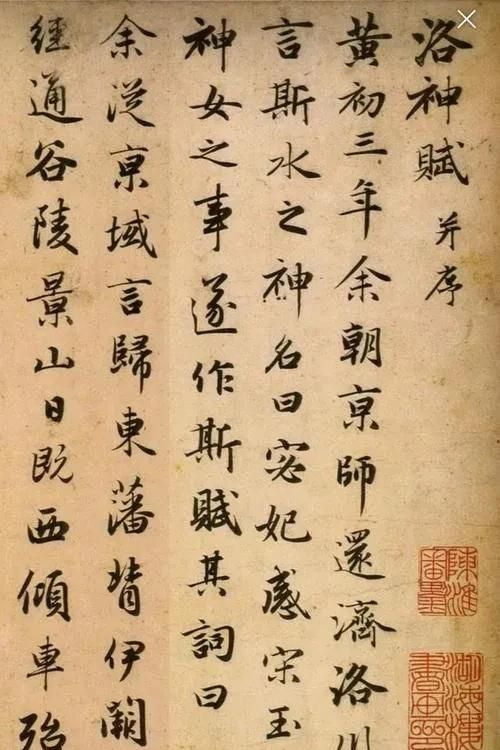 洛神賦 并序
黃初三年余朝京師還濟洛川
言斯水之神名曰宓妃感宋玉
神女之事遂作斯賦其詞曰
余從京域言歸東藩背伊闕
經通谷陵景山日既西傾車殆